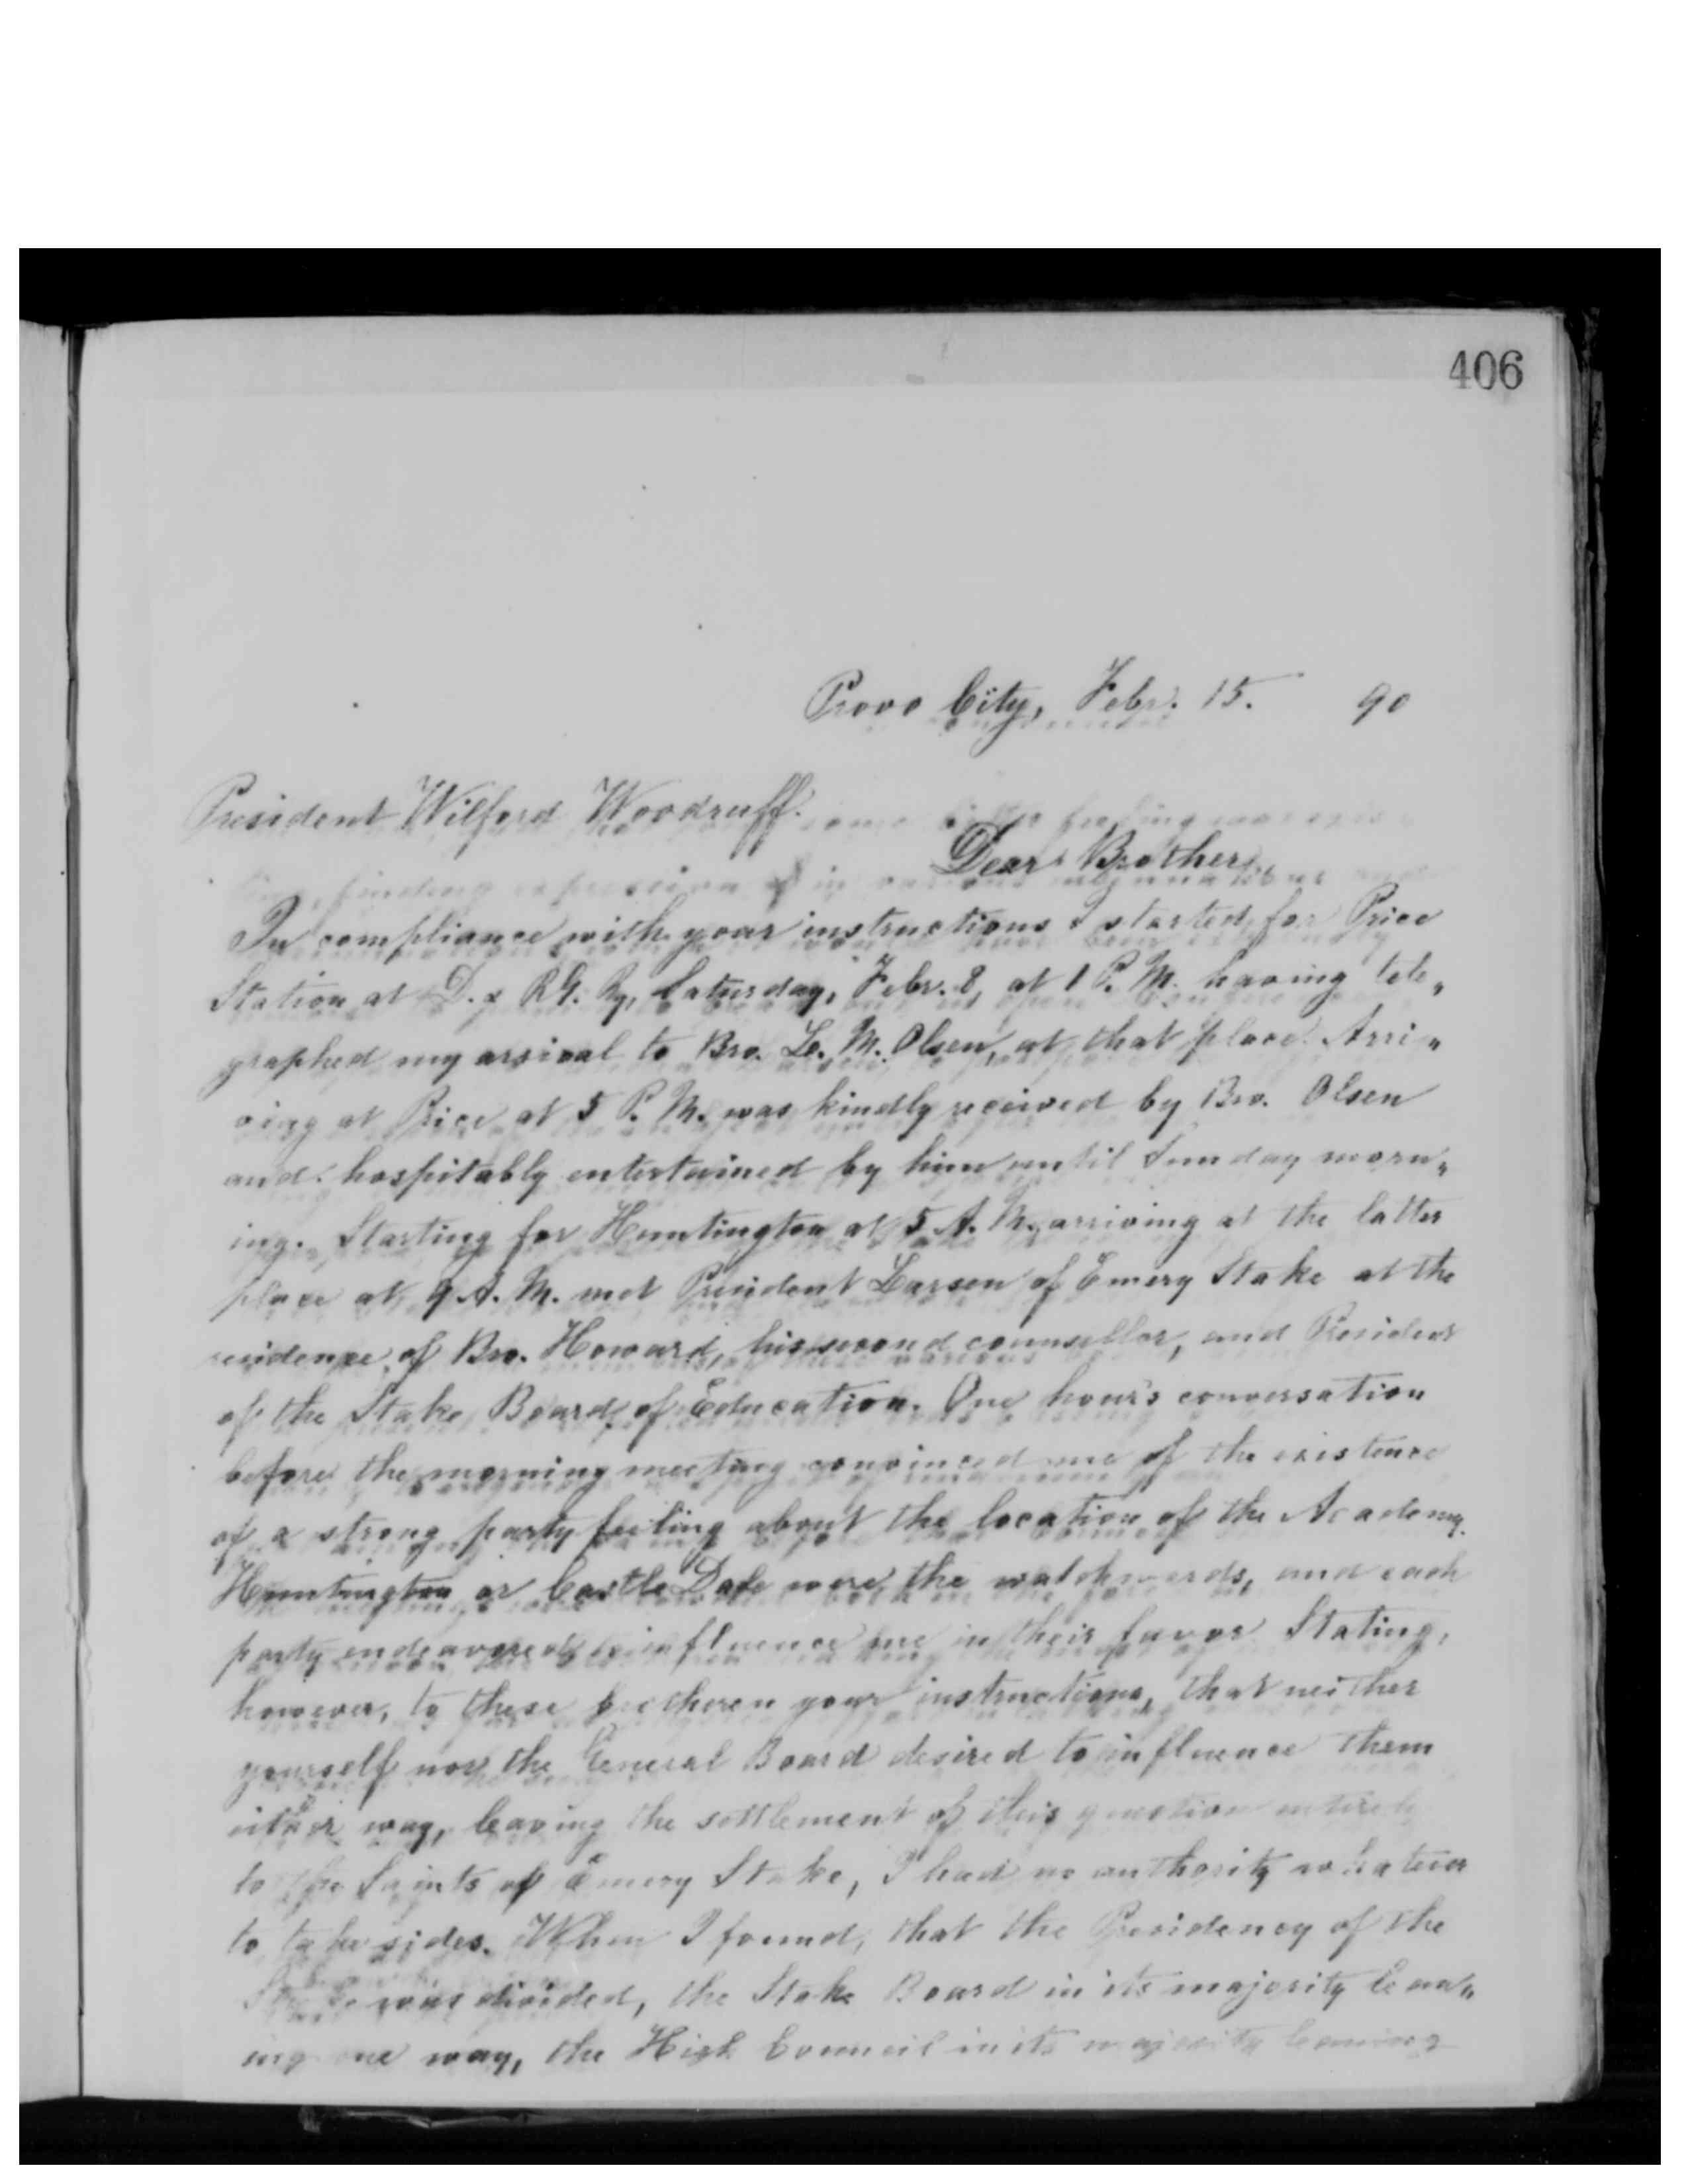 406
Provo City, Febr. 15. 90
President Wilford Woodruff.
Dear Brother,
In compliance with your instructions I started for Price
Station at D. & R.G. Ry, Saturday, Febr. 8, at 1 P. M. having tele„
graphed my arrival to Bro. L. M. Olsen, at that place. Arri„
ving at Price at 5 P. M. was kindly received by Bro. Olsen
and hospitably entertained by him until Sunday morn„
ing. Starting for Huntington at 5 A. M. arriving at the latter
place at 9 A. M. met President Larsen of Emery Stake at the
residence of Bro. Howard, his second counsellor, and President
of the Stake Board of Education. One hour's conversation
before the morning meeting convinced me of the existence
of a strong party feeling about the location of the Academy.
Huntington or Castle Dale were the watchwords, and each
party endeavored to influence me in their favor. Stating,
however, to these brethren your instructions, that neither
yourself nor the General Board desired to influence them
either way, leaving the settlement of this question entirely
to the Saints of Emery Stake, I had no authority whatever
to take sides. When I found, that the Presidency of the
Stake was divided, the Stake Board in its majority lean„
ing one way, the High Council in its majority leaning